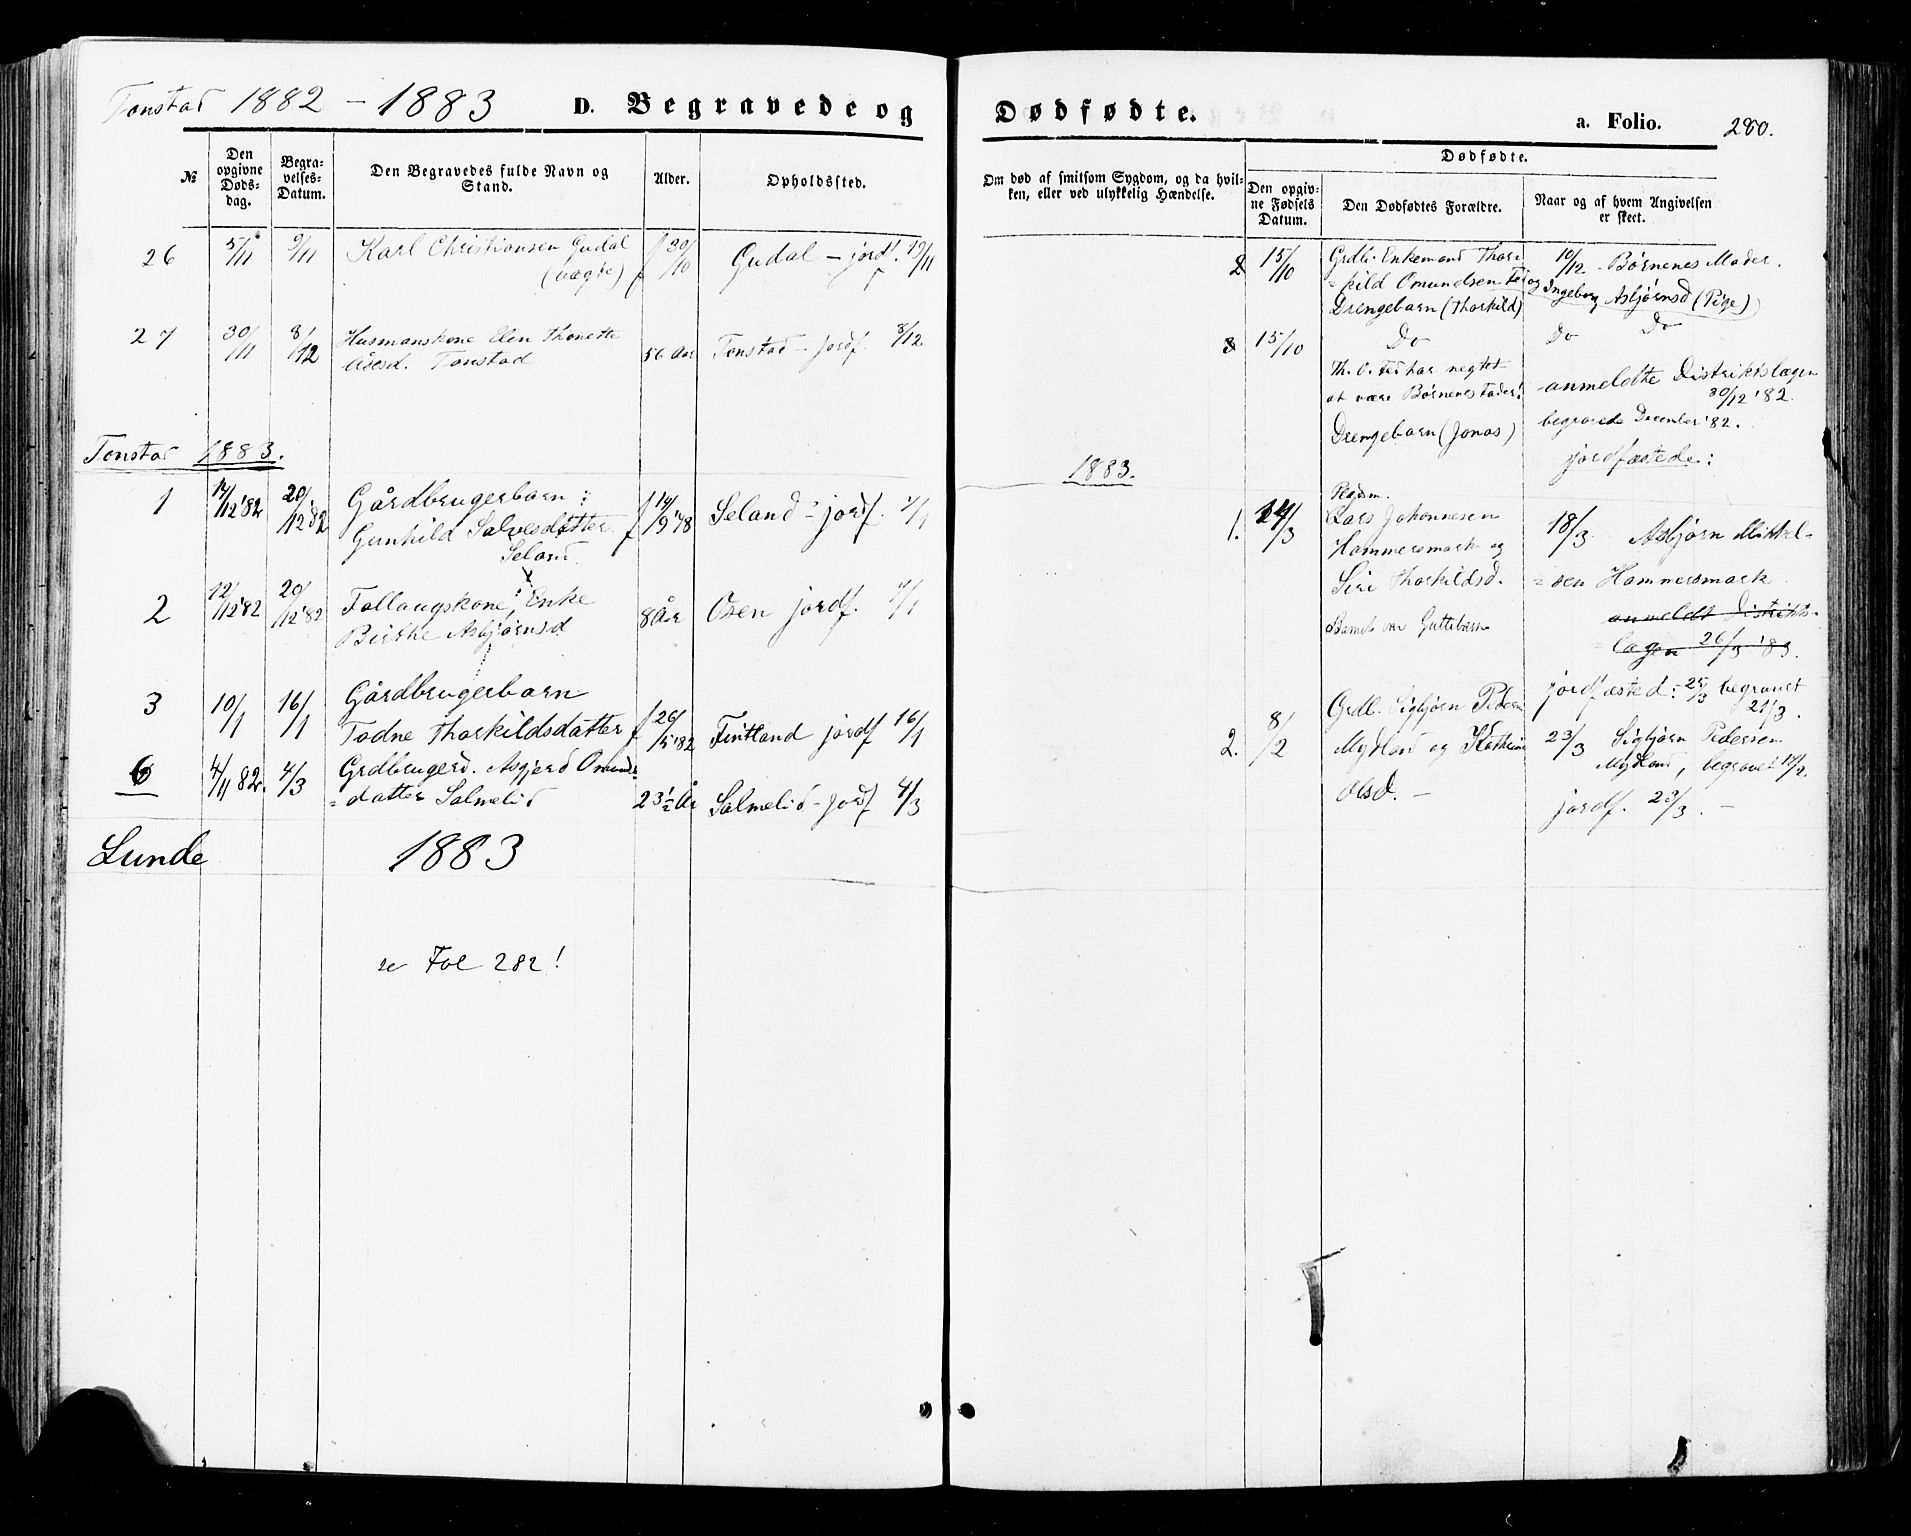 Tonstad 1882 - 1883 D. Begravede og
No
Den opgivne Døds-dag.
Begra-velses-Datum.
Den Begravedes fulde Navn og Stand.
Alder.
Opholdssted.
26 5/11 9/11 Karl Christiansen Gudal f 30/10 Gudal - jordf. 19/11
(uægte)
27 30/11 8/12 Husmanskone Elen Thonette
Åsesd. Tonstad 56 Aar Tonstad - jordf. 8/12
Tonstad 1883.
1 14/12 82 20/12 82 Gårdbrugerbarn: f 14/9 78 Seland - jordf. 4/1
Gunhild Salvesdatter
Seland
2 12/12 82 20/12 82 Follaugskone, Enke
Birthe Asbjørnsd 8 År Osen jordf. 4/1
3 10/1 16/1 Gårdbrugerbarn
Todne Thorkildsdatter f 26/5 82 Fintland jordf 16/1
6 4/11 82. 4/3 Grdbrugerd. Asgjerd Omunds
=datter Salmelid 23 1/2 År Salmelid - jordf 4/3
Lunde 1883
se Fol 282!
Dødfødte. a. Folio. 280.
Om død af smitsom Sygdom, og da hvil-
ken, eller ved ulykkelig Hændelse.
Dødfødte.
Den opgiv-ne Fødsels Datum.
Den Dødfødtes Forældre.
Naar og af hvem Angivelsen er skeet.
2 15/10 Grdb. Enkemand Thor- 10/12 - Børnenes Moder.
=kild Omundsen Fed og Ingeborg Asbjørnsd (Pige)
Drengebarn (Thorkild)
3 15/10 Do Do Do
Th. O. Fed har negtet
at være Børnenes fader! anmeldte Distriktslægen
30/12 '82.
Drengebarn (Jonas) begravede December '82.
jordfæstede:
1883.
1. 14/3 Lars Johannesen 18/3 Asbjørn Mikkel-
Hammersmark og =sen Hammersmark
Siri Thorkildsd. anmeldt Distrikts-
Barnet var Guttebarn =lægen 26/3 '83.
jordfæsted: 25/3 begravet 21/3.
2. 8/2 Grdb. Sigbjørn Pedersen
Mydland og Kathrine 23/3 Sigbjørn Pedersen
Mydland, begravet 17/2.
Olsd. - jordf. 23/3. -